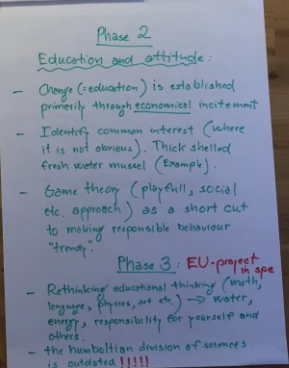 Phase 2
Education and attitude:
- Change (=education) is established
primarily through economical incitement
- Identify common interest (where
it is not obvious). Thick shelled
fresh water mussel (Example).
- Game theory (playfull, social
etc. approach) as a short cut
to making responsible behaviour
"trendy".
Phase 3: EU-project
in spe
- Rethinking educational thinking (math,
language, physics, art etc.) → water,
energy, responsibility for yourself and
others.
- the humboltian division of sciences
is outdated !!!!!